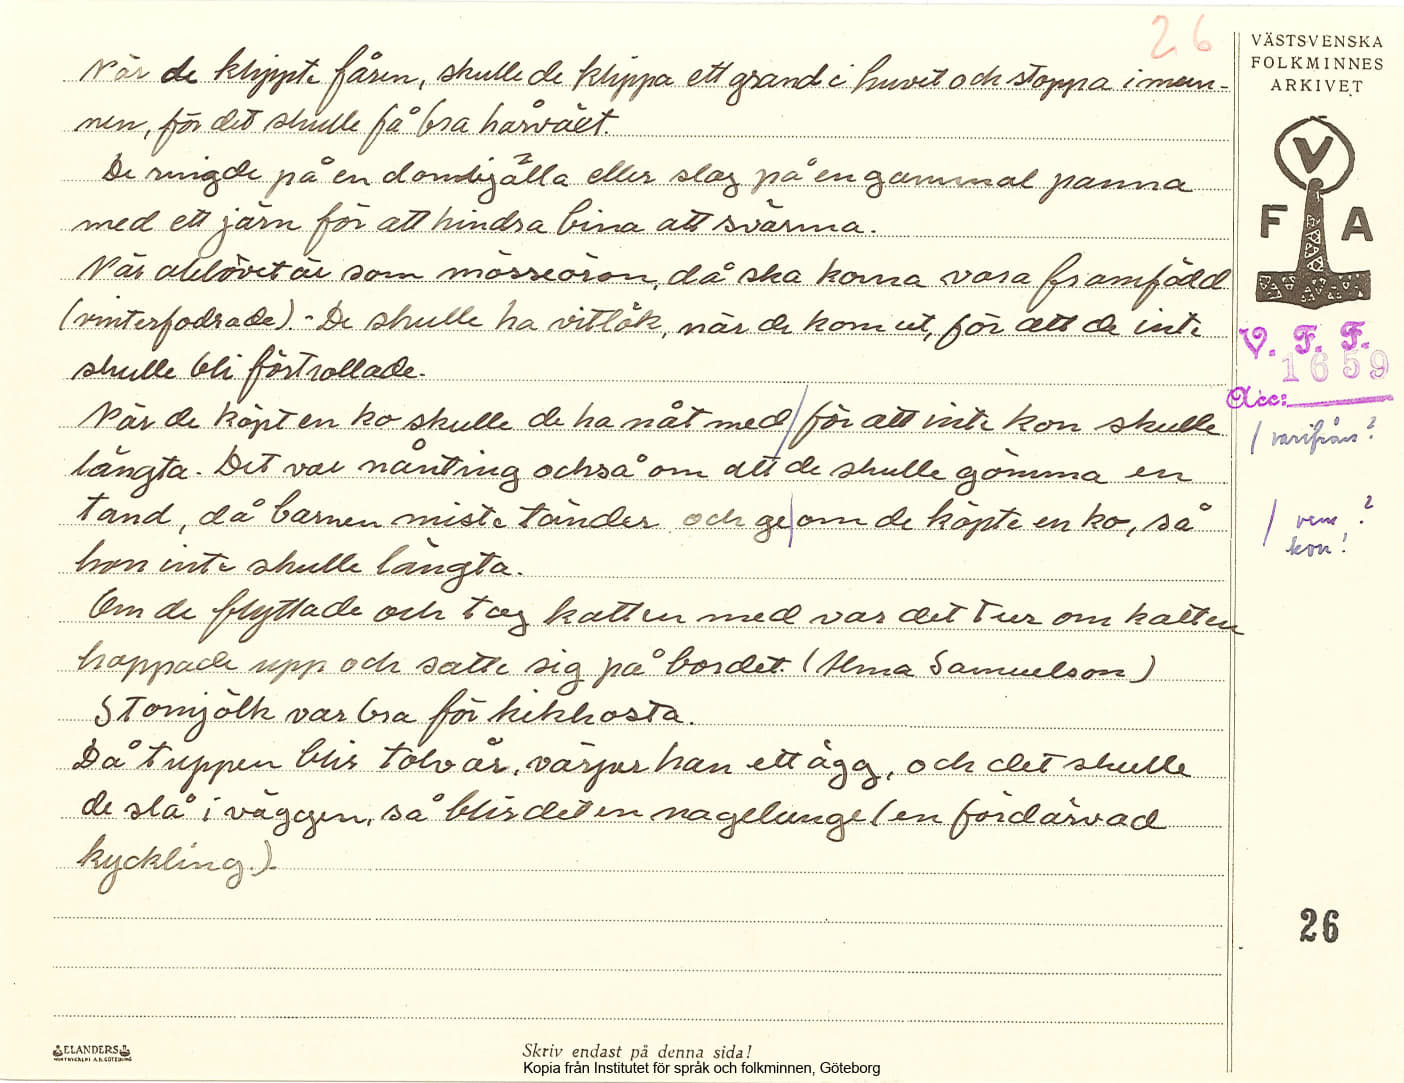 26
VÄSTSVENSKA
FOLKMINNES
ARKIVET
När de klippte fåren, skulle de klippa ett grand i huvet och stoppa i mun-
nen, för det skulle få bra hårväxt.
De ringde på en dombjälla eller slog på en gammal panna
med ett järn för att hindra bina att svärma.
När allövet är som mössöron, då ska korna vara framfödd
(vinterfodrade). - De skulle ha vitlök, när de kom ut, för att de inte
skulle bli förtrollade.
När de köpt en ko skulle de ha nåt med / för att inte kon skulle
längta. Det var nånting också om att de skulle gömma en
tand, då barnen miste tänder och ge / om de köpte en ko, så
hon inte skulle längta.
Om de flyttade och tog katten med var det tur om katten
hoppade upp och satte sig på bordet. (Alma Samuelson)
Stomjölk var bra för kikhosta.
Då tuppen blir tolv år, värper han ett ägg, och det skulle
de slå i väggen, så blir det en nagelunge (en fördärvad
kyckling.).
V
F A
V. F. F.
1659
Acc:
/ varifrån?
/ vem?
kon!
26
ELANDERS
Skriv endast på denna sida!
Kopia från Institutet för språk och folkminnen, Göteborg